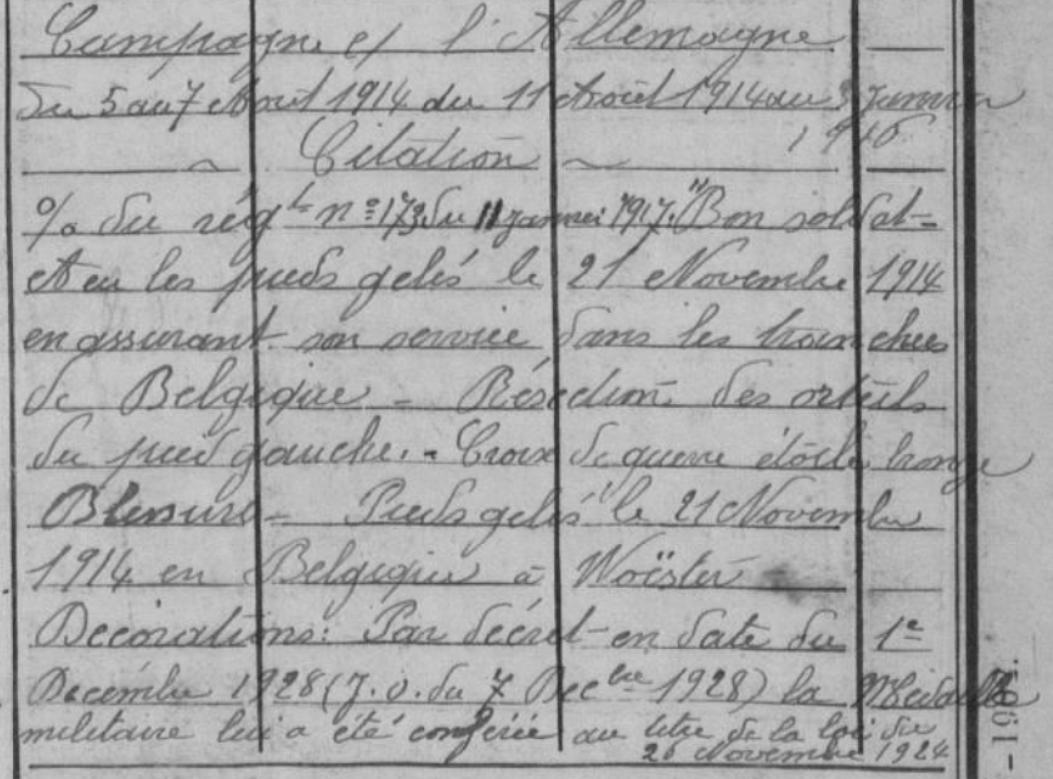 Campagne c/ l'Allemagne
Du 5 au 7 Août 1914 du 11 Août 1914 au 3 Janvier
1916
~ Citation ~
% du régt n° 173 du 11 janvier 1917. "Bon soldat -
A eu les pieds gelés le 21 Novembre 1914
en assurant son service dans les tranchées
de Belgique - Résection des orteils
du pied gauche. - Croix de guerre étoile bronze
Blessure - Pieds gelés le 21 Novembre
1914 en Belgique à Woëster
Décorations: Par décret en date du 1e
Décembre 1928 (J.O. du 7 Decbre 1928) la Médaille
militaire lui a été conférée au titre de la loi du
26 Novembre 1924
-1907.